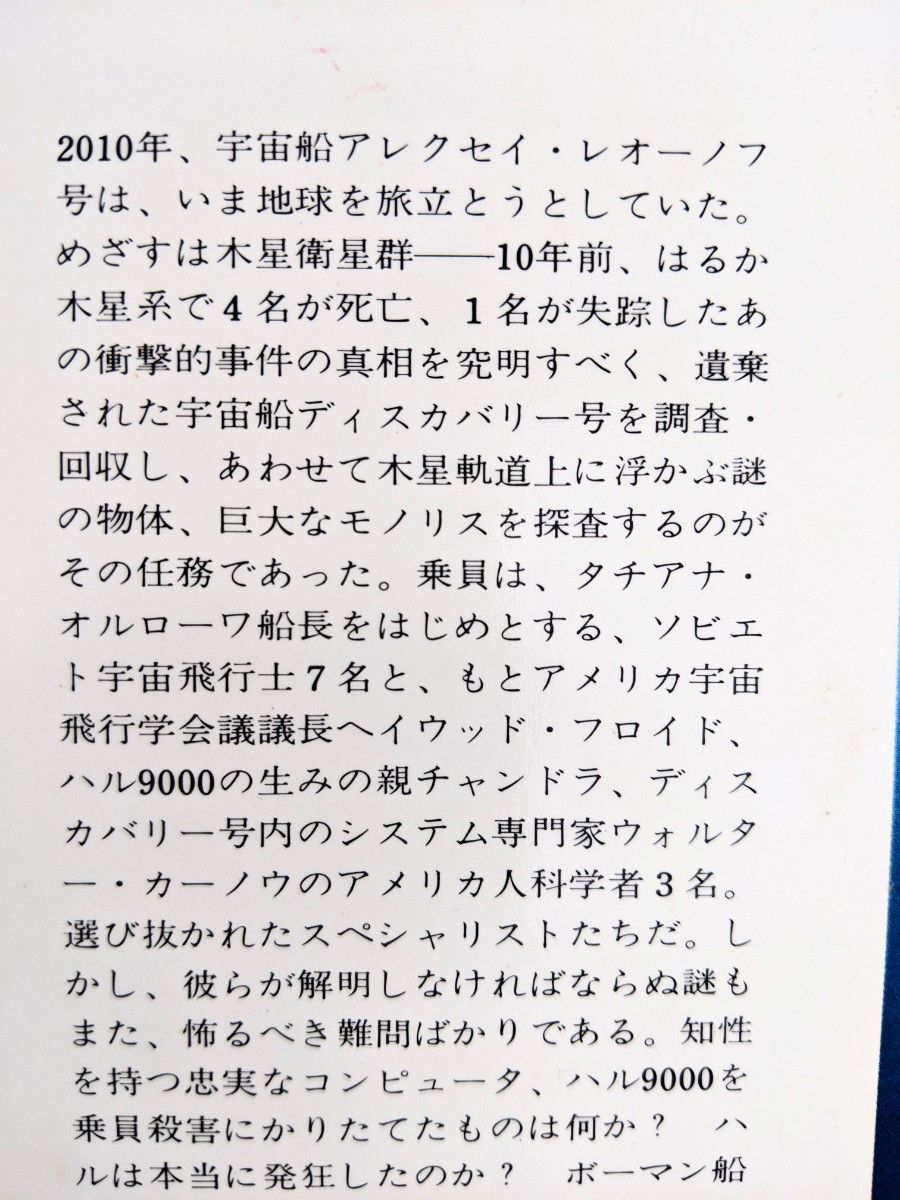 2010年、宇宙船アレクセイ・レオーノフ
号は、いま地球を旅立とうとしていた。
めざすは木星衛星群――10年前、はるか
木星系で4名が死亡、1名が失踪したあ
の衝撃的事件の真相を究明すべく、遺棄
された宇宙船ディスカバリー号を調査・
回収し、あわせて木星軌道上に浮かぶ謎
の物体、巨大なモノリスを探査するのが
その任務であった。乗員は、タチアナ・
オルローワ船長をはじめとする、ソビエ
ト宇宙飛行士7名と、もとアメリカ宇宙
飛行学会議議長ヘイウッド・フロイド、
ハル9000の生みの親チャンドラ、ディス
カバリー号内のシステム専門家ウォルタ
ー・カーノウのアメリカ人科学者3名。
選び抜かれたスペシャリストたちだ。し
かし、彼らが解明しなければならぬ謎も
また、怖るべき難問ばかりである。知性
を持つ忠実なコンピュータ、ハル9000を
乗員殺害にかりたてたものは何か？　ハ
ルは本当に発狂したのか？　ボーマン船